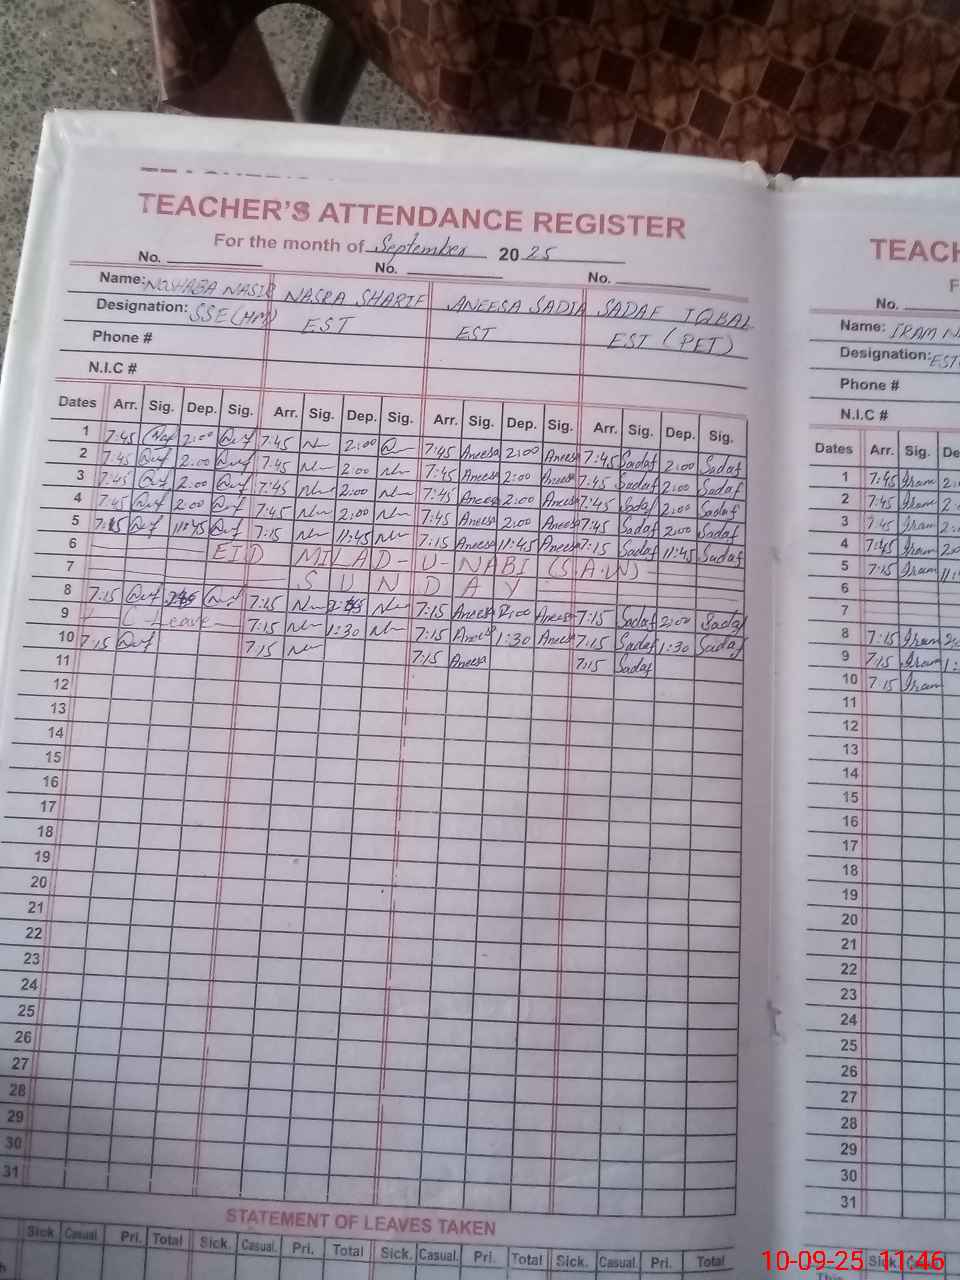 TEACHER'S ATTENDANCE REGISTER
For the month of September 2025
No. No. No.
Name: NOSHABA NASIR NASRA SHARIF ANEESA SADIA SADAF IQBAL
Designation: SSE(HM) EST EST EST (PET)
Phone #
N.I.C #
Dates Arr. Sig. Dep. Sig. Arr. Sig. Dep. Sig. Arr. Sig. Dep. Sig. Arr. Sig. Dep. Sig.
1 7:45 2:00 7:45 2:00 7:45 Aneesa 2:00 Aneesa 7:45 Sadaf 2:00 Sadaf
2 7:45 2:00 7:45 2:00 7:45 Aneesa 2:00 Aneesa 7:45 Sadaf 2:00 Sadaf
3 7:45 2:00 7:45 2:00 7:45 Aneesa 2:00 Aneesa 7:45 Sadaf 2:00 Sadaf
4 7:45 2:00 7:45 2:00 7:45 Aneesa 2:00 Aneesa 7:45 Sadaf 2:00 Sadaf
5 7:15 11:45 7:15 11:45 7:15 Aneesa 11:45 Aneesa 7:15 Sadaf 11:45 Sadaf
6 EID MILAD-U-NABI (S.A.W)
7 SUNDAY
8 7:15 7:15 7:15 Aneesa 2:00 Aneesa 7:15 Sadaf 2:00 Sadaf
9 C Leave 7:15 1:30 7:15 Aneesa 1:30 Aneesa 7:15 Sadaf 1:30 Sadaf
10 7:15 7:15 7:15 Aneesa 7:15 Sadaf
11
12
13
14
15
16
17
18
19
20
21
22
23
24
25
26
27
28
29
30
31
STATEMENT OF LEAVES TAKEN
Sick Casual. Pri. Total Sick. Casual. Pri. Total Sick. Casual. Pri. Total Sick. Casual. Pri. Total
TEACH
No.
Name: IRAM
Designation: EST
Phone #
N.I.C #
Dates Arr. Sig.
1 7:45 Iram
2 7:45 Iram
3 7:45 Iram
4 7:45 Iram
5 7:15 Iram
6
7
8 7:15 Iram
9 7:15 Iram
10 7:15 Iram
11
12
13
14
15
16
17
18
19
20
21
22
23
24
25
26
27
28
29
30
31
Sick
10-09-25 11:46